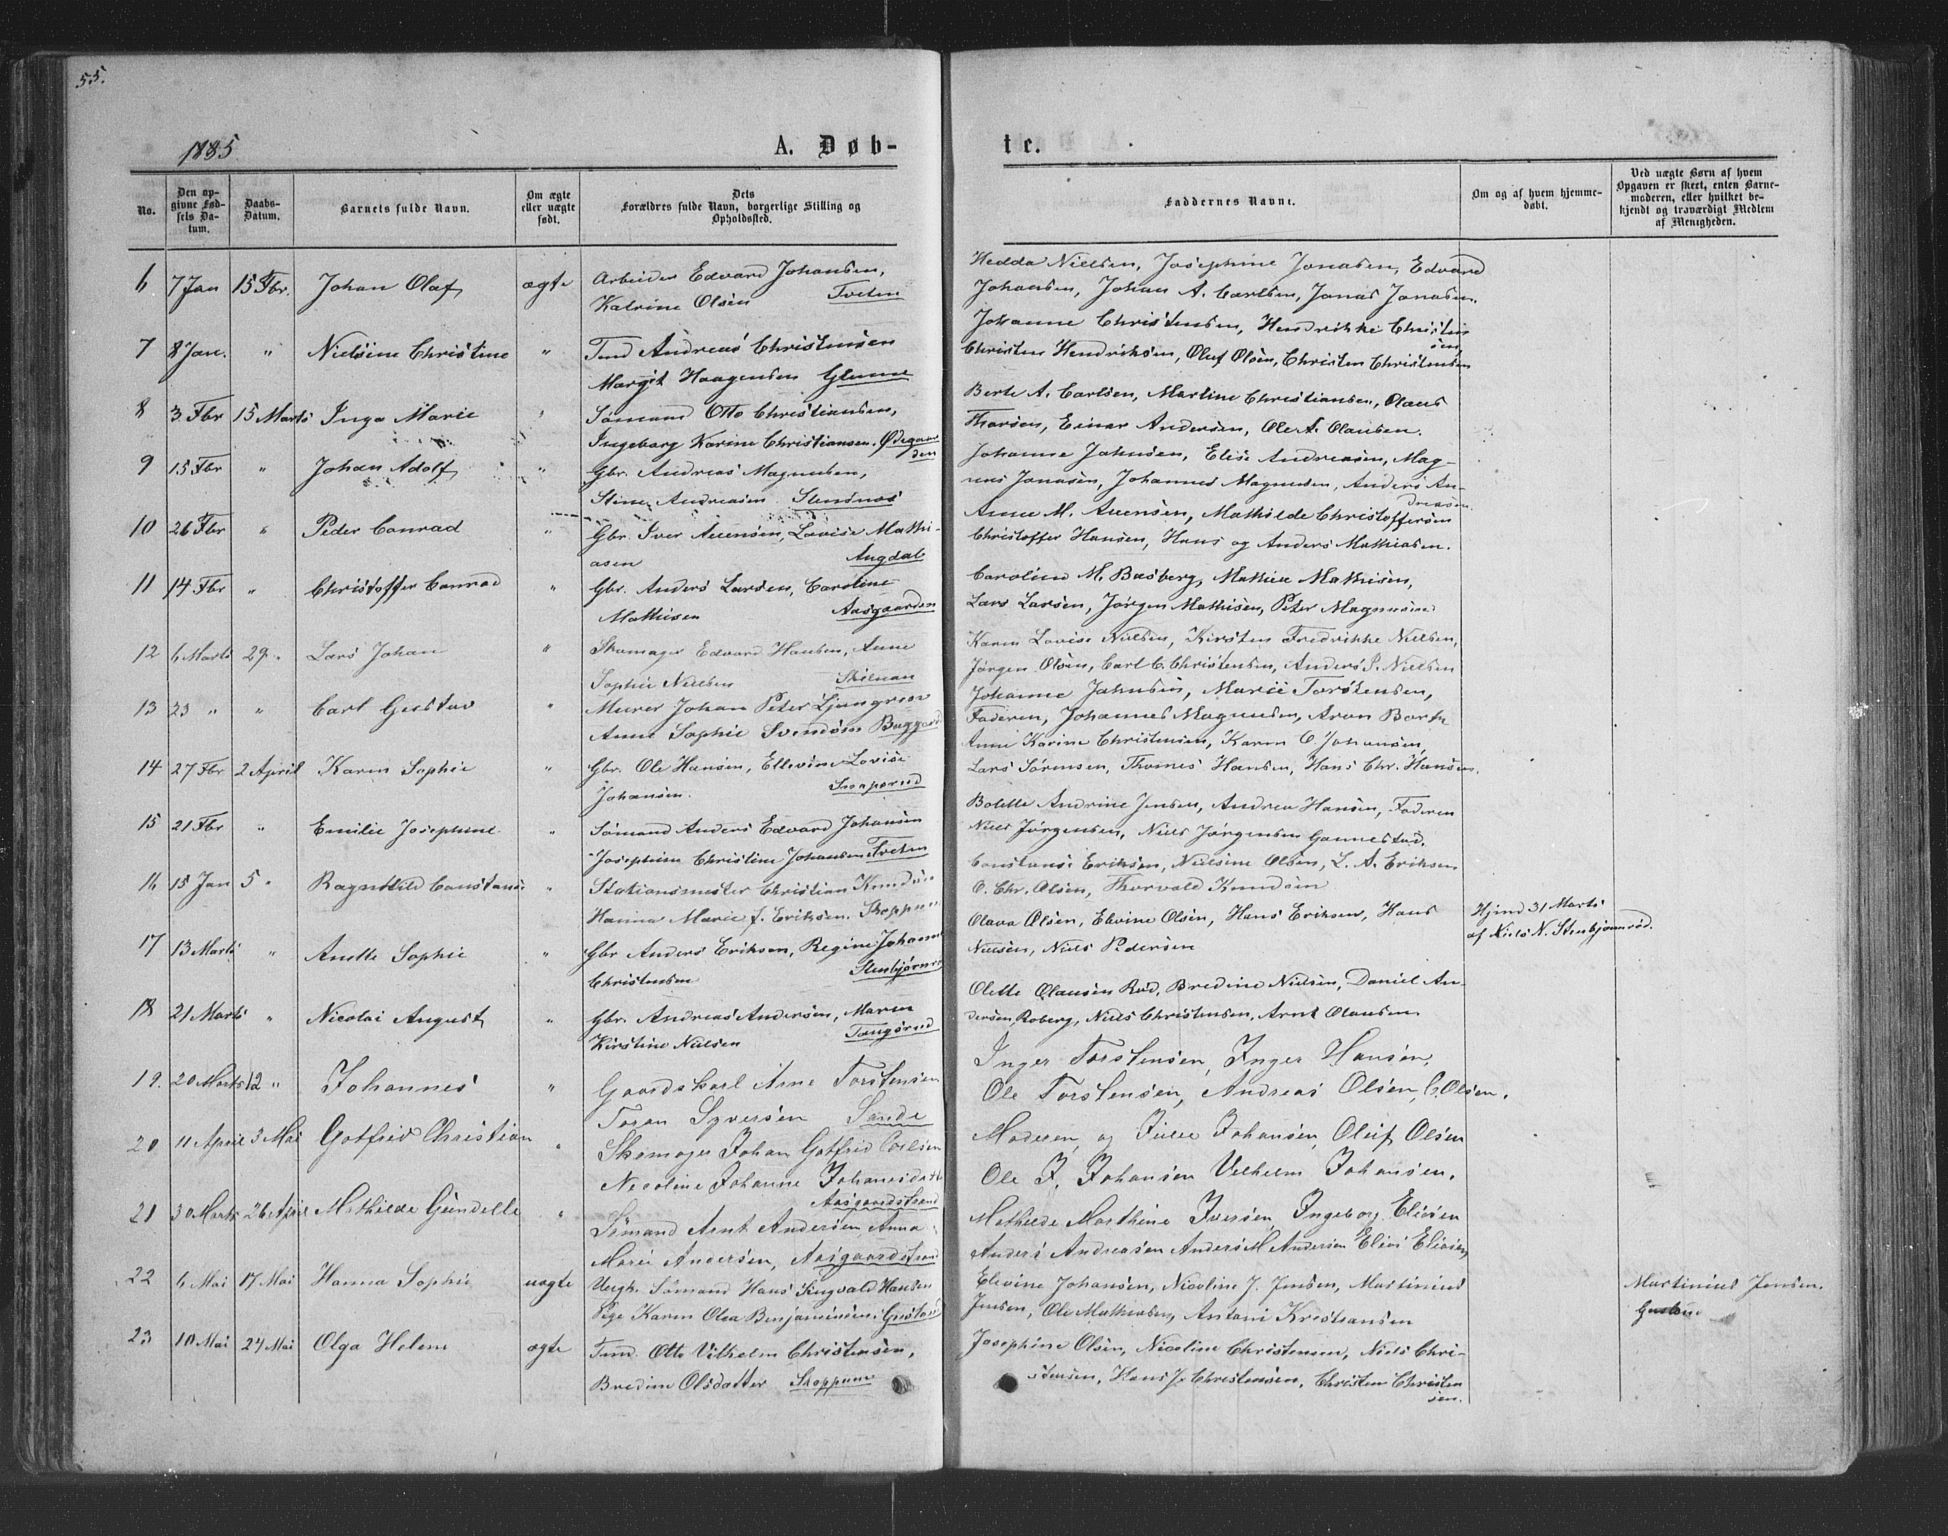 55.
1885
A. Døb-
te.
No.
Den opgivne Fødsels Datum.
Daabs-Datum.
Barnets fulde Navn.
Om ægte eller uægte født.
Dets Forældres fulde Navn, borgerlige Stilling og Opholdssted.
Faddernes Navne.
Om og af hvem hjemmedøbt.
Ved uægte Børn af hvem Opgaven er skeet, enten Barnemoderen, eller hvilket bekjendt og troværdigt Medlem af Menigheden.
6 7 Jan 15 Fbr. Johan Olaf ægte Arbeider Edvard Johansen,
Katrine Olsen Tveten
Hedda Nielsen, Josephine Jonasen, Edvard
Johansen, Johan A. Carlsen, Jonas Jonasen.
7 8 Jan. " Nielsine Christine " Tmd Andreas Christensen
Margit Haagensen Glenne
Johanne Christensen, Hendrikke Christen
sen,
Christen Hendriksen, Oluf Olsen, Christen Christensen
8 3 Fbr 15 Marts Inga Marie " Sømand Otto Christiansen,
Ingeborg Karine Christiansen. Ødegaar
den
Berte A. Carlsen, Martine Christiansen, Olaus
Thorsen, Einar Andersen, Ole A. Olausen.
9 15 Fbr " Johan Adolf " Gbr. Andreas Magnusen,
Stine Andreasen Stensnes
Johanne Jahnsen, Elise Andreasen, Mag-
nus Jonasen, Johannes Magnusen, Anders An-
dreasen
10 26 Fbr " Peder Conrad " Gbr. Iver Auensen, Lovise Mathi-
asen Augdal
Anne M. Auensen, Mathilde Christoffersen
Christoffer Hansen, Hans og Anders Mathiasen.
11 14 Fbr " Christoffer Conrad " Gbr. Anders Larsen, Caroline
Mathisen Aasgaarden
Caroline M. Basberg, Mathie Mathisen,
Lars Larsen, Jørgen Mathisen, Peter Magnusen
12 6 Marts 29 " Lars Johan " Skomager Edvard Hansen, Anne
Sophie Nielsen
Karen Lovise Nielsen, Kirsten Fredrikke Nielsen,
Jørgen Olsen, Carl C. Christensen, Anders P. Nielsen
13 23 " " Carl Gustav " Murer Johan Peter Ljungren
Anne Sophie Svendsen
Johanne Jahnsen, Marie Torstensen,
Faderen, Johannes Magnusen, Aron Borch
14 27 Fbr 2 April Karen Sophie " Gbr. Ole Hansen, Ellevine Lovise
Johansen.
Anne Karine Christensen, Karen O. Johansen,
Lars Sørensen, Thomes Hansen, Hans Chr. Hansen.
15 21 Fbr " Emilie Josephine " Sømand Anders Edvard Johansen
Josephine Christine Johansen Tveten
Bolette Andrine Jensen, Andrea Hansen, Faderen
Niels Jørgensen, Niels Jørgensen Gannestad.
16 15 Jan 5 " Ragnhild Constanse " Stationsmester Christian Knudsen
Hanna Marie f. Eriksen. Skoppum
Constanse Eriksen, Nielsine Olsen, L. A. Eriksen
O. Chr. Olsen, Thorvald Knudsen
17 13 Marts " Anette Sophie " Gbr Anders Eriksen, Regine Johanne
Christensen Stenbjørnrø
Olava Olsen, Elevine Olsen, Hans Eriksen, Hans
Nielsen, Niels Pedersen
Hjmd 31 Marts
af Niels N. Stenbjørnrød.
18 21 Marts " Nicolai August " Gbr. Andreas Andersen, Maren
Kirstine Nielsen Tangsrud
Olette Olausen Rød, Bredine Nielsen, Daniel An-
dersen Roberg, Niels Christensen, Arnt Olausen
19. 20 Marts 12 " Johannes " Gaardskarl Arne Torstensen
Toran Syversen Sande
Inger Torstensen, Inger Hansen,
Ole Torstensen, Andreas Olsen, C. Olsen.
20 11 April 3 Mai Gotfrid Christian " Skomager Johan Gotfrid Carlsen
Nicoline Johanne Johannesdatter
Aasgaardstrand
Moderen og Julie Johansen, Oluf Olsen
Ole J. Johansen Velhelm Johansen.
21 30 Marts 26 April Mathilde Gundelle " Sømand Arnt Andersen Anna
Marie Andersen, Aasgaardstrand
Mathilde Marthine Iversen Ingeborg Eliesen
Anders Andreasen Anders M. Andersen Elias Eliesen
22 6 Mai 17 Mai Hanna Sophie uægte Ungk. Sømand Hans Singvald Hansen
Pige Karen Olea Benjaminsen,
Elevine Johansen, Nicoline J. Jensen, Martinius
Jensen, Ole Mathiasen, Antoni Kristiansen
Martinius Jensen.
23 10 Mai 24 Mai Olga Helene ægte Tmd. Otto Vilhelm Christensen,
Bredine Olsdatter Skoppum
Josephine Olsen, Nicoline Christensen, Niels Chri-
stensen, Hans J. Christensen, Christen Christen
sen.